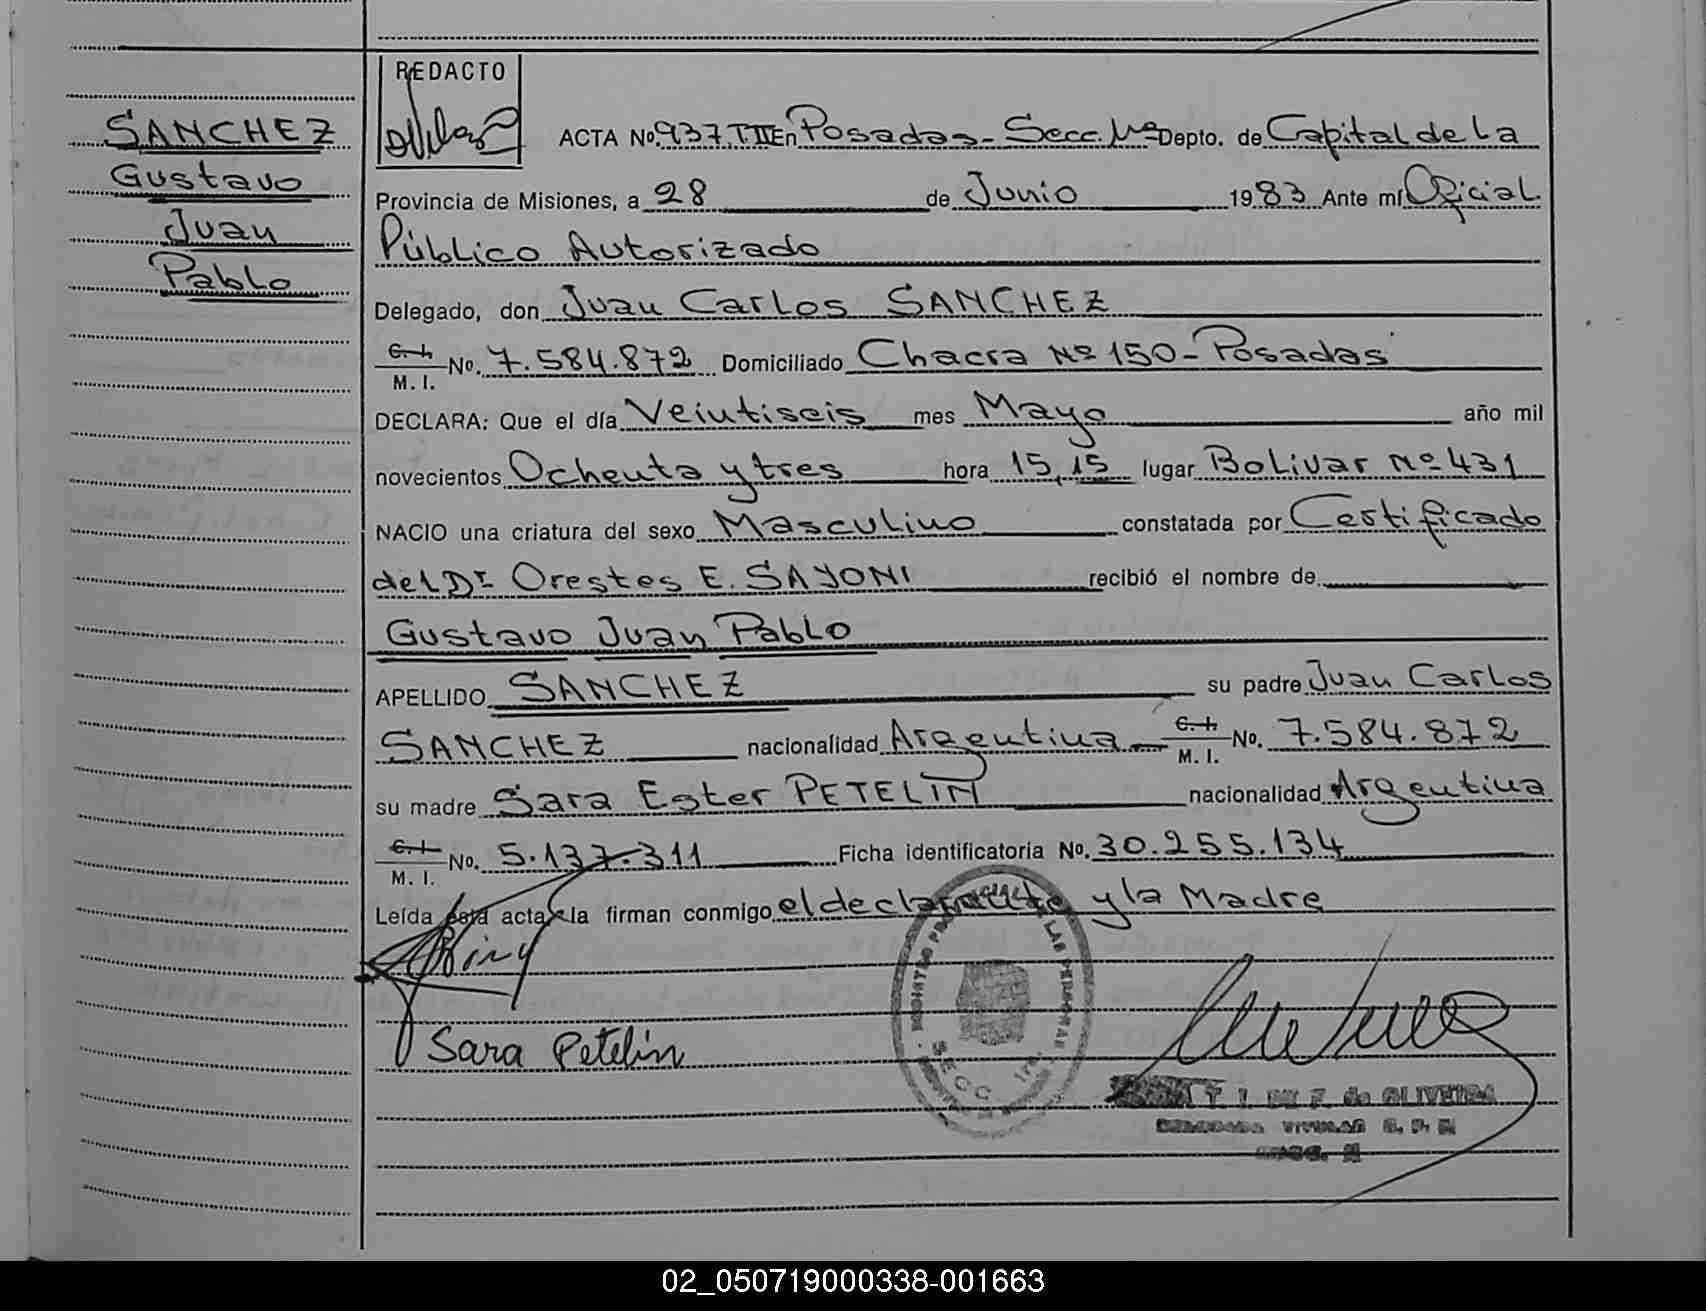 SANCHEZ
Gustavo
Juan
Pablo
REDACTO
ACTA No. 937, T III En Posadas - Secc. 1ª Depto. de Capital de la
Provincia de Misiones, a 28 de Junio 1983 Ante mí Oficial
Público Autorizado
Delegado, don Juan Carlos SANCHEZ
C. I. M. I. No. 7.584.872 Domiciliado Chacra Nº 150 - Posadas
DECLARA: Que el día Veintiseis mes Mayo año mil
novecientos Ochenta y tres hora 15,15 lugar Bolivar Nº 431
NACIO una criatura del sexo Masculino constatada por Certificado
del Dr Orestes E. SAYONI recibió el nombre de
Gustavo Juan Pablo
APELLIDO SANCHEZ su padre Juan Carlos
SANCHEZ nacionalidad Argentina C. I. M. I. No. 7.584.872
su madre Sara Ester PETELIN nacionalidad Argentina
C. I. M. I. No. 5.137.311 Ficha identificatoria No. 30.255.134
Leída esta acta la firman conmigo el declarante y la Madre
Sara Petelin
LAS PERSONAS
SECC. 1ra.
de OLIVEIRA
02_050719000338-001663